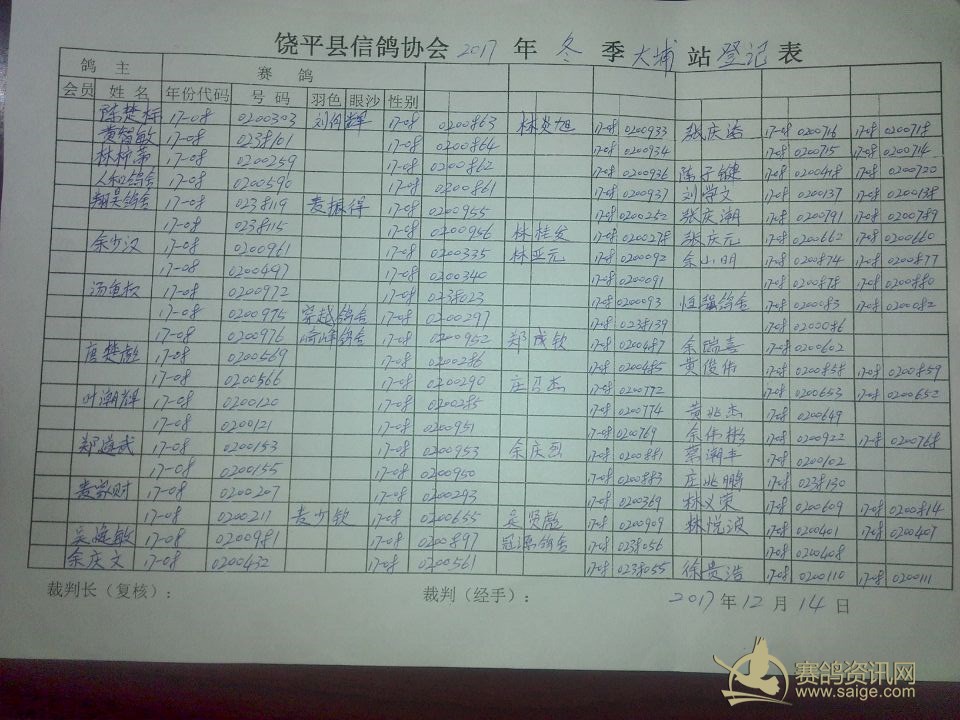 饶平县信鸽协会 2017 年 冬 季 大埔 站 登记 表
鸽 主 赛 鸽
会员 姓 名 年份代码 号 码 羽色 眼沙 性别
陈楚标 17-08 0200303 17-08 0200863 林炎旭 17-08 0200933 张庆诺 17-08 0200716 17-08 0200718
黄智敏 17-08 0238161 17-08 0200864 17-08 0200934 17-08 0200715 17-08 0200714
17-08 0200259 17-08 0200862 17-08 0200936 陈子键 17-08 0200418 17-08 0200720
人和鸽舍 17-08 0200590 17-08 0200861 17-08 0200937 刘学文 17-08 0200137 17-08 0200138
翔昊鸽舍 17-08 0238119 麦振得 17-08 0200955 17-08 0200252 张庆潮 17-08 0200791 17-08 0200789
17-08 0238115 17-08 0200956 林桂发 17-08 0200278 张庆元 17-08 0200662 17-08 0200660
余少汉 17-08 0200961 17-08 0200335 林亚元 17-08 0200092 余小明 17-08 0200874 17-08 0200877
17-08 0200497 17-08 0200340 17-08 0200091 17-08 0200878 17-08 0200880
17-08 0200972 17-08 0238023 17-08 0200093 恒强鸽舍 17-08 0200083 17-08 0200082
17-08 0200975 穿越鸽舍 17-08 0200297 17-08 0238139 17-08 0200086
17-08 0200976 鸽舍 17-08 0200952 郑成钦 17-08 0200487 余瑞喜 17-08 0200602
唐楚彪 17-08 0200569 17-08 0200286 17-08 0200485 黄俊伟 17-08 0200858 17-08 0200859
17-08 0200566 17-08 0200290 庄召杰 17-08 0200772 17-08 0200653 17-08 0200652
叶潮辉 17-08 0200120 17-08 0200285 17-08 0200774 黄兆杰 17-08 0200649
17-08 0200121 17-08 0200951 17-08 0200769 余伟彬 17-08 0200922 17-08 0200768
郑进武 17-08 0200153 17-08 0200953 余庆 17-08 0200881 蔡潮丰 17-08 0200102
17-08 0200155 17-08 0200950 17-08 0200883 庄兆鹏 17-08 0238130
17-08 0200207 17-08 0200293 17-08 0200369 林义荣 17-08 0200609 17-08 0200814
17-08 0200217 麦少钦 17-08 0200655 吴贤彪 17-08 0200909 林悦波 17-08 0200401 17-08 0200407
吴健敏 17-08 0200981 17-08 0200897 冠源鸽舍 17-08 0238056 17-08 0200408
余庆文 17-08 0200432 17-08 0200561 17-08 0238055 徐贵浩 17-08 0200110 17-08 0200111
裁判长（复核）： 裁判（经手）： 2017 年 12 月 14 日
赛鸽资讯网
www.saige.com